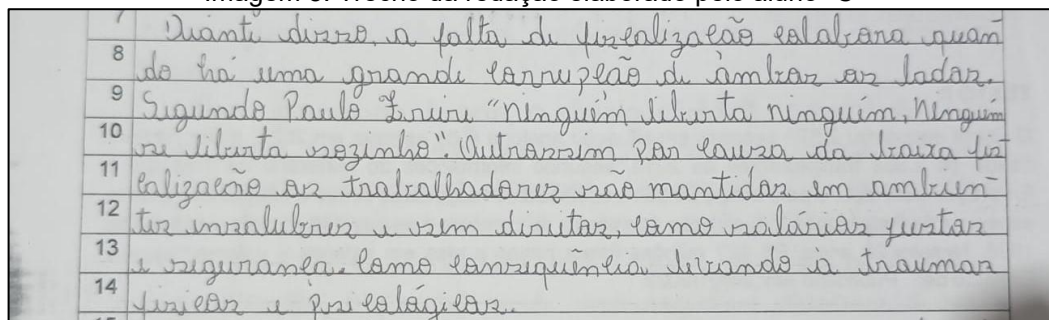 7
Diante disso, a falta de fiscalização colabora quan
8 do há uma grande corrupção de ambos os lados.
9 Segundo Paulo Freire "Ninguém liberta ninguém, Ninguém
10 se liberta sozinho". Outrossim por causa da baixa fis
11 calização os trabalhadores são mantidos em ambien-
12 tes insalubres e sem direitos, como salários justos
13 e segurança. Como consequência levando à traumas
14 físicos e psicológicos.